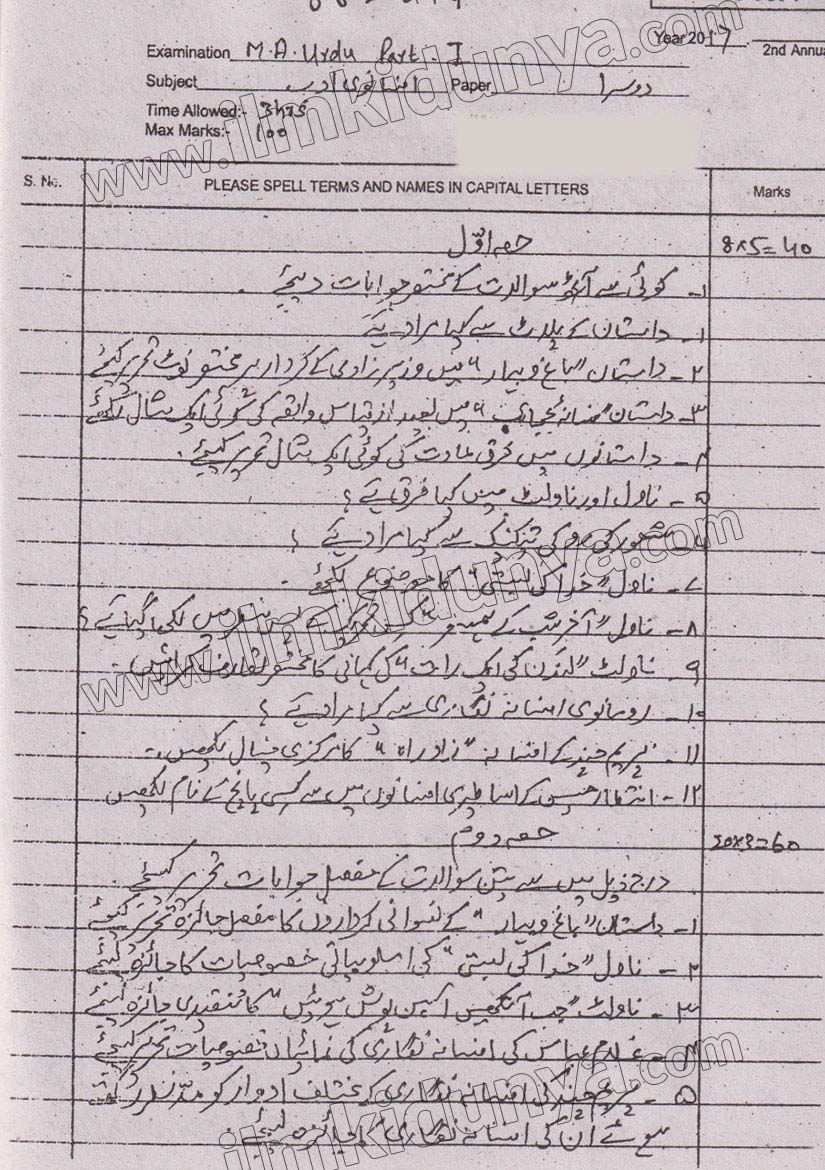 Year 2017
2nd Annua
Examination M.A. Urdu Part - I
Subject افسانوی ادب Paper دوسرا
Time Allowed:- 3hrs
Max Marks:- 100
S. No. PLEASE SPELL TERMS AND NAMES IN CAPITAL LETTERS Marks
حصہ اوّل 8x5=40
۱- کوئی سے آٹھ سوالات کے مختصر جوابات دیجئے۔
۱- داستان کے پلاٹ سے کیا مراد ہے
۲- داستان "باغ و بہار" میں وزیر زادی کے کردار پر مختصر نوٹ تحریر کیجئے
۳- داستان "فسانۂ عجائب" میں بعید از قیاس واقعہ کی کوئی ایک مثال لکھئے
۴- داستانوں میں خرق عادت کی کوئی ایک مثال تحریر کیجئے۔
۵- ناول اور ناولٹ میں کیا فرق ہے؟
۶- شعور کی رو کی تیکنک سے کیا مراد ہے؟
۷- ناول "خدا کی بستی" کا موضوع لکھئے۔
۸- ناول "آخر شب کے ہمسفر" کس تحریک کے پس منظر میں لکھا گیا ہے؟
۹- ناولٹ "لندن کی ایک رات" کی کہانی کا مختصر تعارف کرائیں۔
۱۰- رومانوی افسانہ نگاری سے کیا مراد ہے؟
۱۱- پریم چند کے افسانہ "زادِ راہ" کا مرکزی خیال لکھیں۔
۱۲- انتظار حسین کے اساطیری افسانوں میں سے کسی پانچ کے نام لکھیں
حصہ دوم 20x3=60
درج ذیل میں سے تین سوالات کے مفصل جوابات تحریر کیجئے۔
۱- داستان "باغ و بہار" کے نسوانی کرداروں کا مفصل جائزہ تحریر کیجئے
۲- ناول "خدا کی بستی" کی اسلوبیاتی خصوصیات کا جائزہ لیجئے
۳- ناولٹ "جب آنکھیں آہن پوش ہوئیں" کا تنقیدی جائزہ لیجئے
۴- غلام عباس کی افسانہ نگاری کی نمایاں خصوصیات تحریر کیجئے
۵- پریم چند کی افسانہ نگاری کے مختلف ادوار کو مدّ نظر رکھتے
ہوئے اُن کی افسانہ نگاری کا جائزہ لیجئے۔
www.ilmkidunya.com
www.ilmkidunya.com
ilmkidunya.com